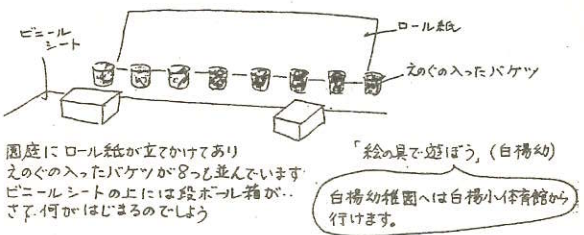 ビニール
シート
ロール紙
えのぐの入ったバケツ
園庭にロール紙が立てかけてあり
えのぐの入ったバケツが8つも並んでいます
ビニールシートの上には段ボール箱が‥
さて何がはじまるのでしょう
「絵の具で遊ぼう」(白楊幼)
白楊幼稚園へは白楊小体育館から
行けます。